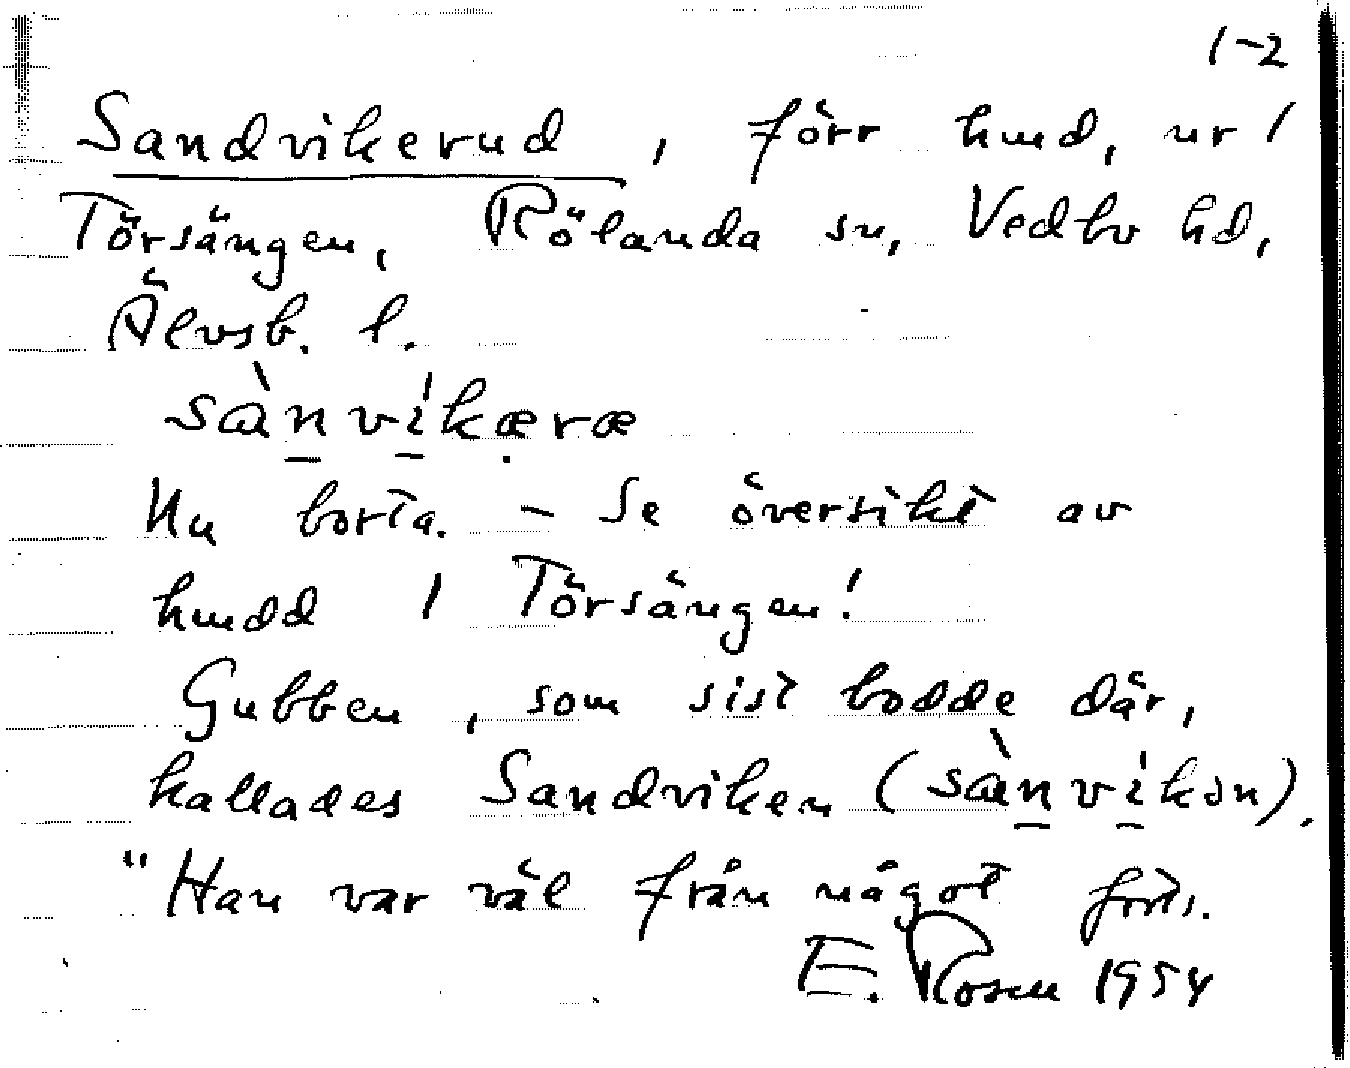 1-2
Sandvikerud, förr hmd, ur /
Törsängen, Rölanda sn, Vedbo hd,
Älvsb. l.
sànvíkæræ
Nu borta. – Se översikt av
hmdd / Törsängen!
Gubben, som sist bodde där,
kallades Sandviken (sànvíkən).
"Han var väl från något forts.
E. Rosen 1954